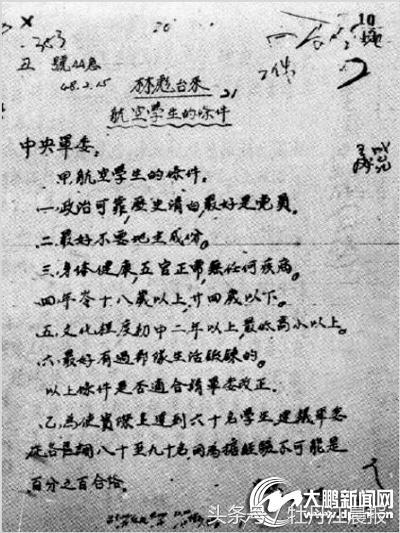 10
353
丑 號 44.
48.2.15
2件
林彪台来
21
航空學生的条件
中央軍委:
甲.航空學生的条件。
一.政治可靠,歷史清白,最好是党員。
二.最好不要地主成份。
三.身体健康,五官正常,無任何疾病。
四.年令十八歲以上,廿四歲以下。
五.文化程度初中二年以上,最低高小以上。
六.最好有過部隊生活鍛鍊的。
以上條件是否適合請軍委改正.
乙.為使實際上達到六十名學生,建議軍委
從各區調八十至九十名,因為據經驗不可能是
百分之百合格。
头条号/牡丹江晨报
大鹏新闻网